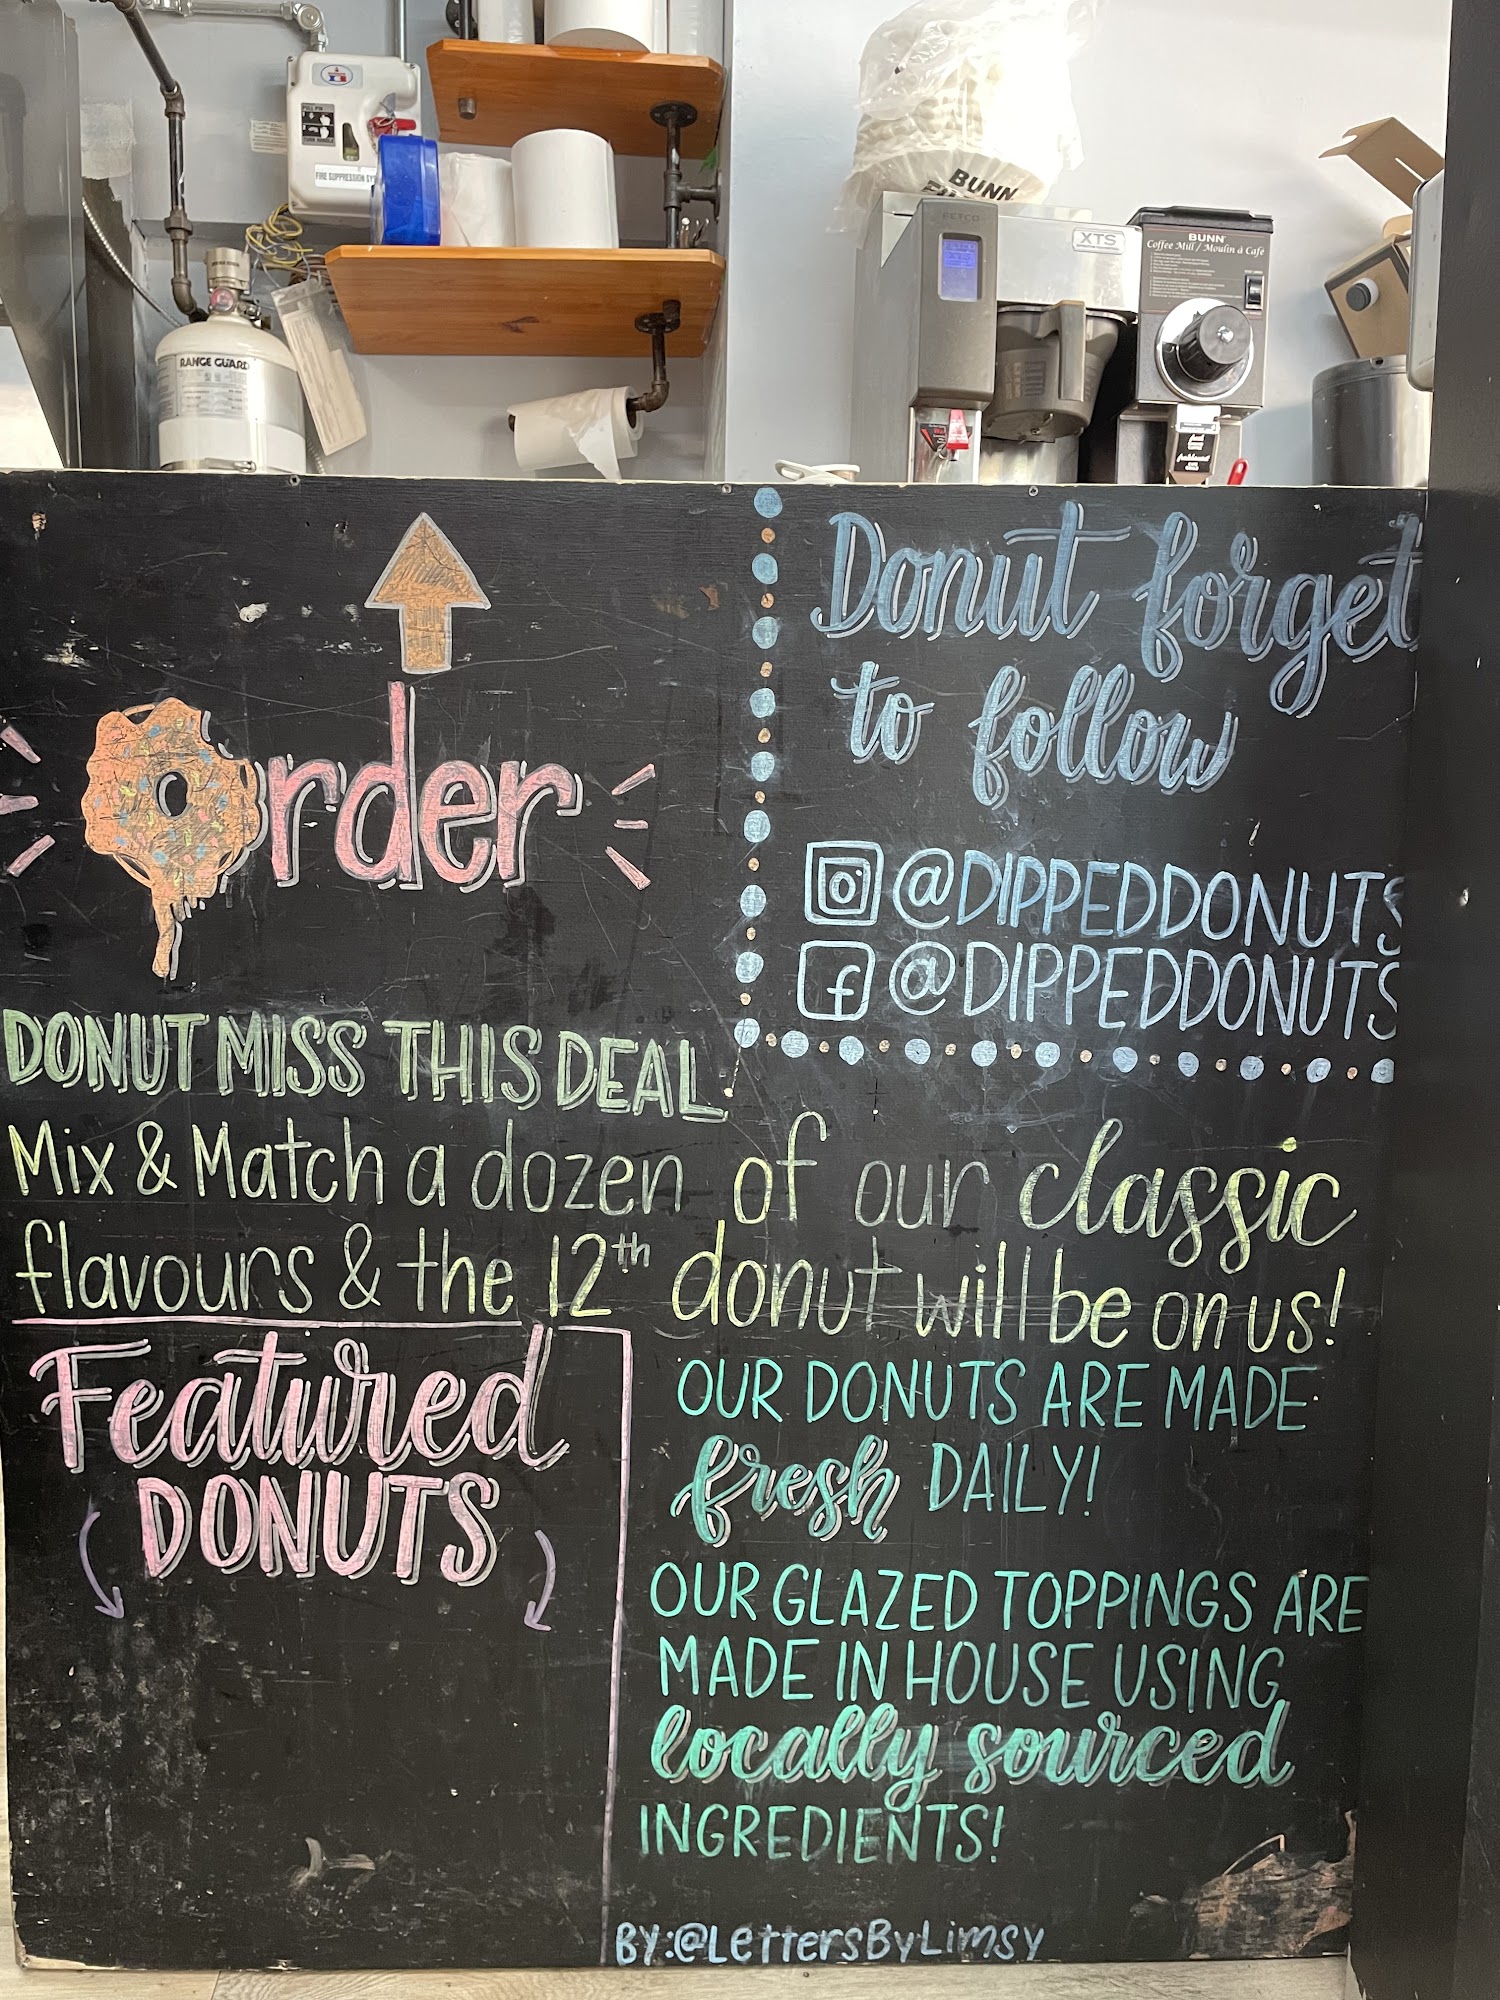 PULL PIN
FIRE SUPPRESSION SYS
RANGE GUARD
BUNN
FETCO
XTS
BUNN
Coffee Mill / Moulin à Café
Order
Donut forget
to follow
@DIPPEDDONUTS
@DIPPEDDONUTS
DONUT MISS THIS DEAL
Mix & Match a dozen of our classic
flavours & the 12th donut will be on us!
Featured
DONUTS
OUR DONUTS ARE MADE
fresh DAILY!
OUR GLAZED TOPPINGS ARE
MADE IN HOUSE USING
locally sourced
INGREDIENTS!
BY:@LettersByLimsy